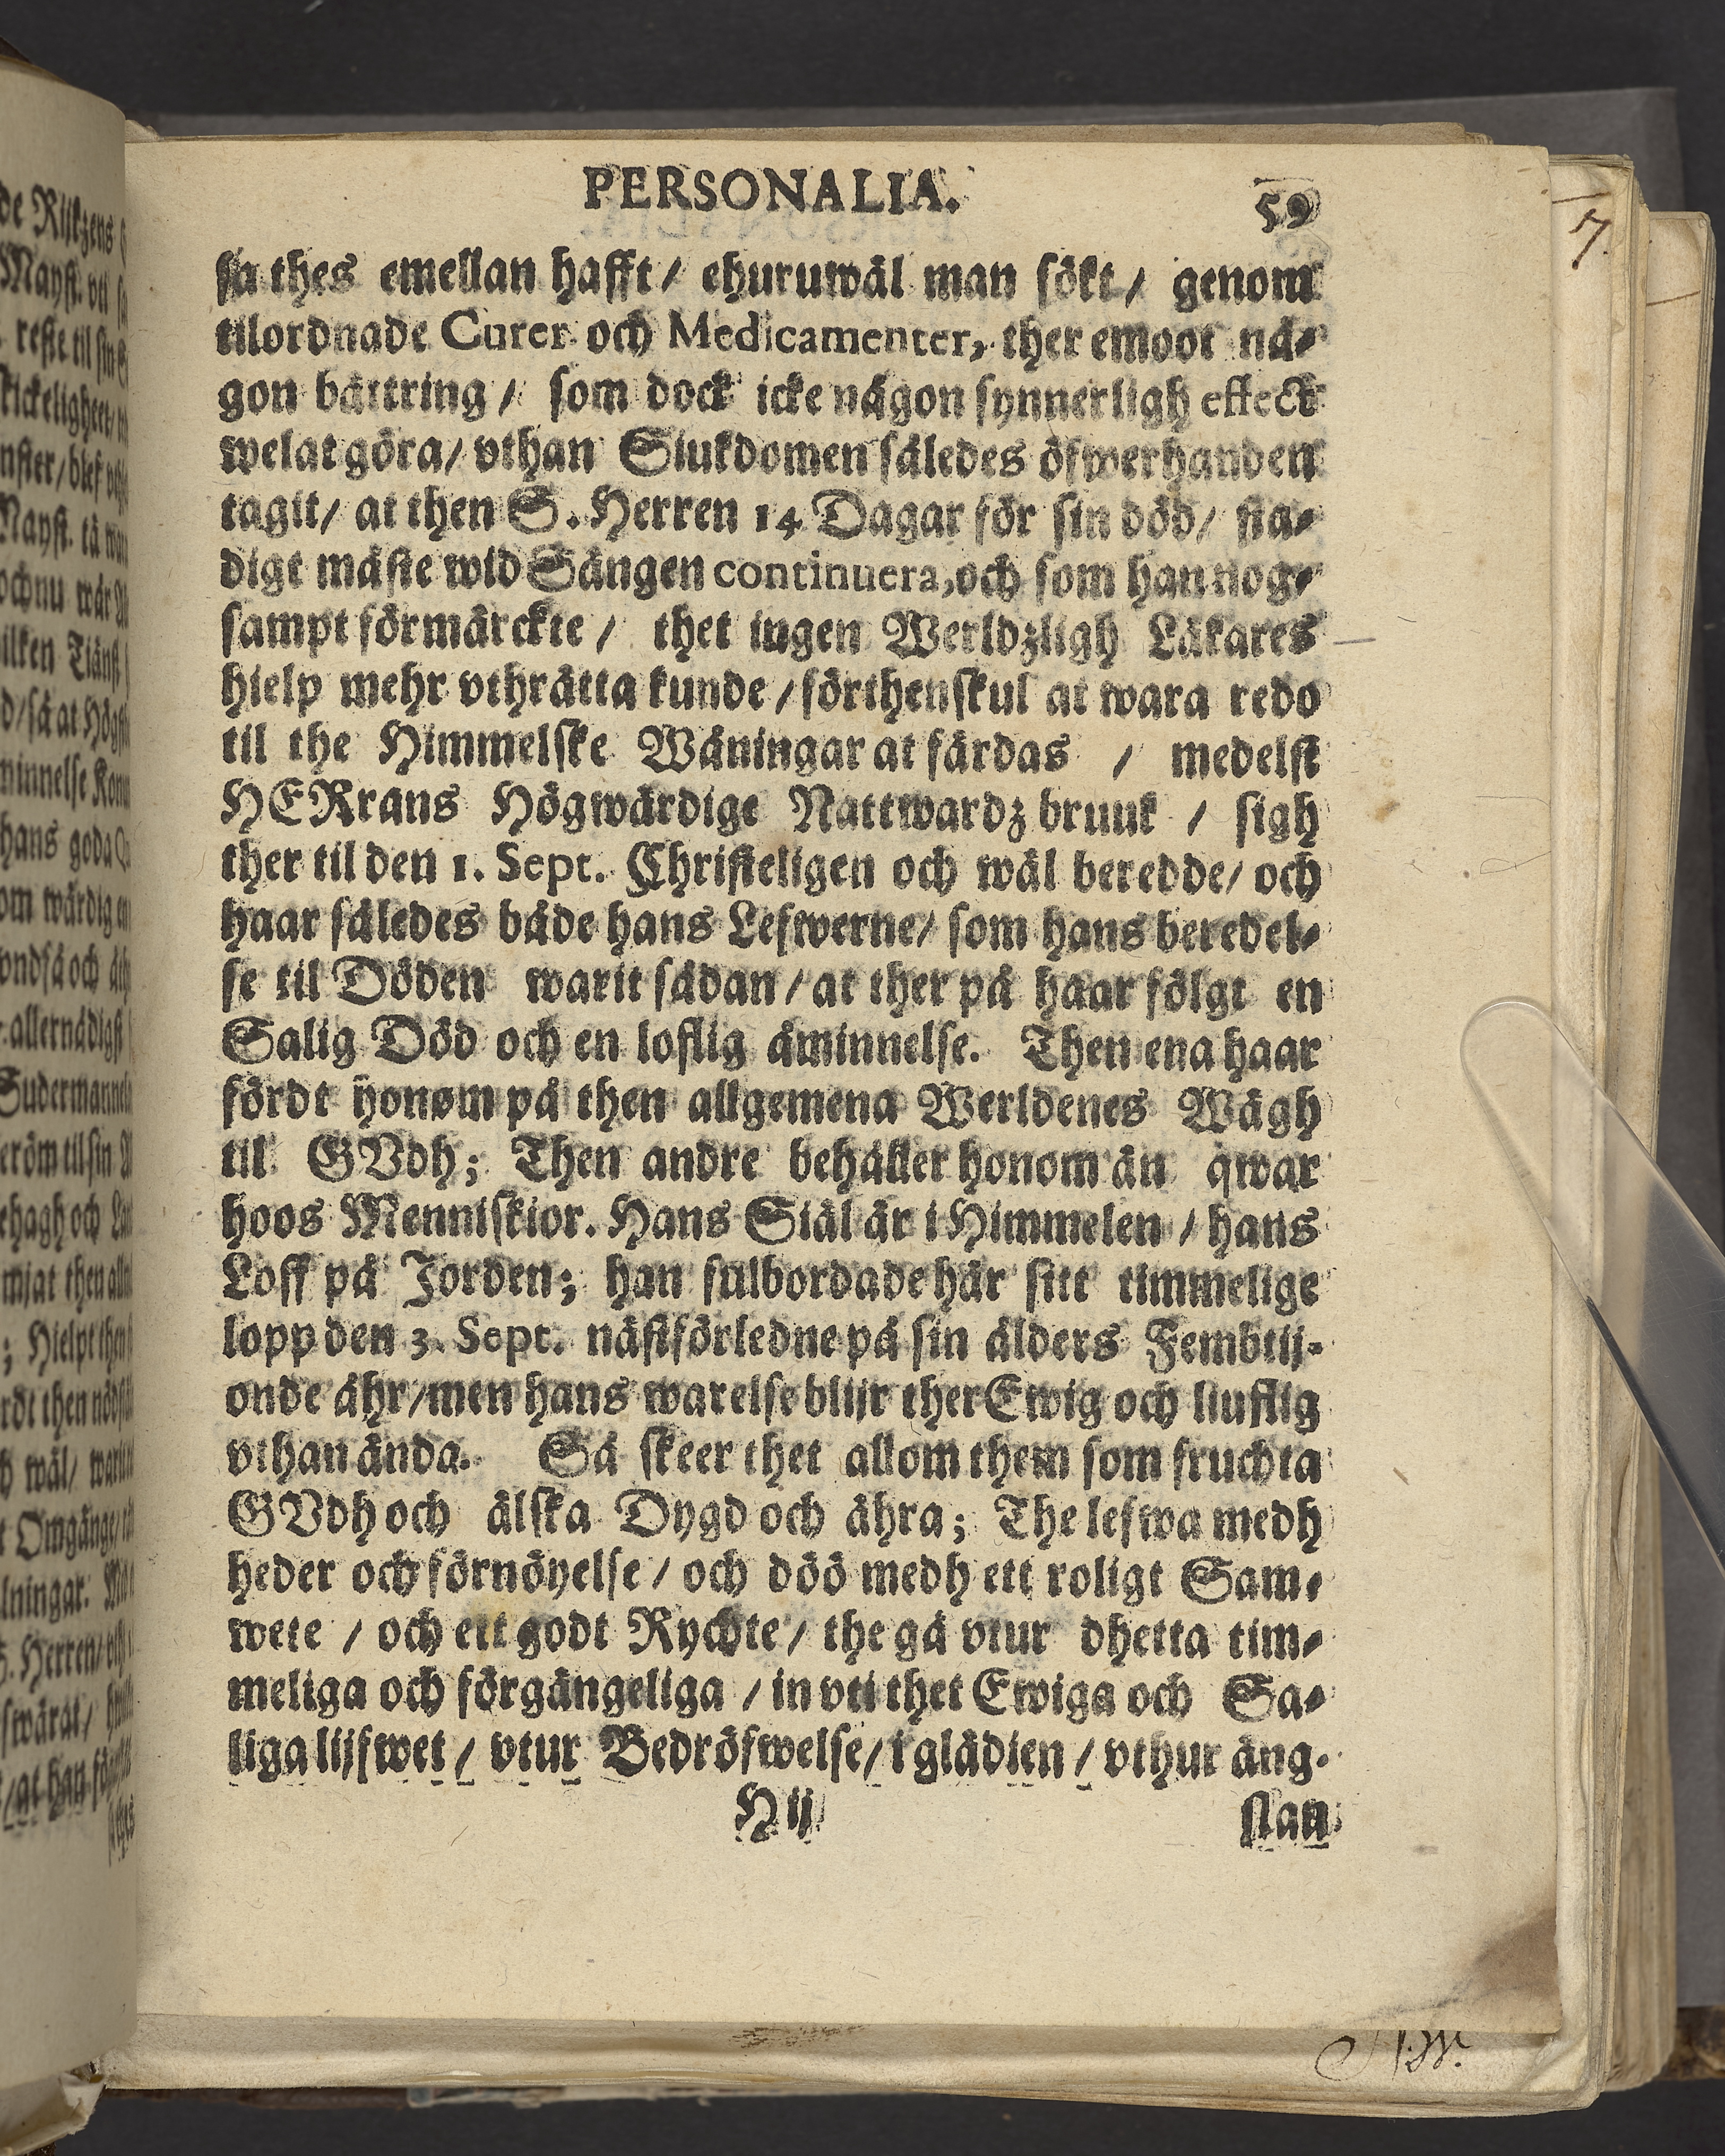 PERSONALIA. 59
sa thes emellan hafft / ehuruwäl man sökt / genom
tilordnade Curer och Medicamenter, ther emoot nå-
gon bättring / som dock icke någon synnerligh effect
welat göra / vthan Siukdomen således öfwerhanden
tagit / at then S. Herren 14 Dagar för sin död / sta-
digt måste wid Sängen continuera, och som han nog-
sampt förmärckte / thet ingen Werldzligh Läkares
hielp mehr vthrätta kunde / förthenskul at wara redo
til the Himmelske Wåningar at färdas / medelst
HERrans Högwärdige Nattwardz bruuk / sigh
ther til den 1. Sept. Christeligen och wäl beredde / och
haar således både hans Lefwerne / som hans beredel-
se til Döden warit sådan / at ther på haar fölgt en
Salig Död och en loflig åminnelse. Then ena haar
fördt honom på then allgemena Werldenes Wägh
til GVdh; Then andre behåller honom än qwar
hoos Menniskior. Hans Siäl är i Himmelen / hans
Loff på Jorden; han fulbordade här sitt timmelige
lopp den 3. Sept. nästförledne på sin ålders Fembtij-
onde åhr / men hans warelse blijr ther Ewig och liuflig
vthan ända. Så skeer thet allom them som fruchta
GVdh och älska Dygd och ähra; The lefwa medh
heder och förnöyelse / och döö medh ett roligt Sam-
wete / och ett godt Rychte / the gå vtur dhetta tim-
meliga och förgängeliga / in vti thet Ewiga och Sa-
liga lijfwet / vtur Bedröfwelse / i glädien / vthur äng-
H ij slan
7.